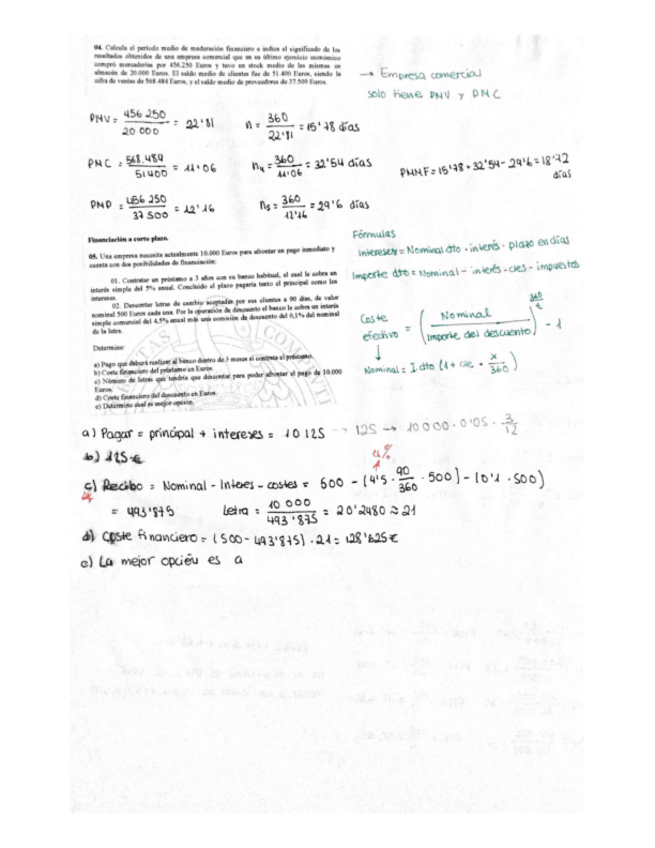 04. Calcula el periodo medio de maduración financiero e indica el significado de los
resultados obtenidos de una empresa comercial que en su último ejercicio económico
compró mercaderías por 456.250 Euros y tuvo un stock medio de las mismas en
almacén de 20.000 Euros. El saldo medio de clientes fue de 51.400 Euros, siendo la
cifra de ventas de 568.484 Euros, y el saldo medio de proveedores de 37.500 Euros.
→ Empresa comercial
solo tiene PMV y PMC
PMV = 456 250 / 20 000 = 22'81 n = 360 / 22'81 = 15'78 días
PMC = 568.484 / 51400 = 11'06 n4 = 360 / 11'06 = 32'54 días
PMMF = 15'78 + 32'54 - 29'6 = 18'72 días
PMP = 456 250 / 37 500 = 12'16 n5 = 360 / 12'16 = 29'6 días
Financiación a corto plazo.
05. Una empresa necesita actualmente 10.000 Euros para afrontar un pago inmediato y
cuenta con dos posibilidades de financiación:
01. Contratar un préstamo a 3 años con su banco habitual, el cual le cobra un
interés simple del 5% anual. Concluido el plazo pagaría tanto el principal como los
intereses.
02. Descontar letras de cambio aceptadas por sus clientes a 90 días, de valor
nominal 500 Euros cada una. Por la operación de descuento el banco le cobra un interés
simple comercial del 4,5% anual más una comisión de descuento del 0,1% del nominal
de la letra.
Determine:
a) Pago que deberá realizar al banco dentro de 3 meses si contrata el préstamo.
b) Coste financiero del préstamo en Euros.
c) Número de letras que tendría que descontar para poder afrontar el pago de 10.000
Euros.
d) Coste financiero del descuento en Euros.
e) Determine cual es mejor opción.
Fórmulas
Intereses = Nominal dto · interés · plazo en días
Importe dto = Nominal - interés - cies - impuestos
Coste efectivo = (Nominal / Importe del descuento)^(360/t) - 1
↓
Nominal = I dto (1 + cie · x/360)
a) Pagar = principal + intereses = 10 125 → 125 → 10 000 · 0'05 · 3/12
b) 125 €
c) Recibo = Nominal - Interes - costes = 500 - (4'5 · 90/360 · 500) - (0'1 · 500)
= 493'875 Letra = 10 000 / 493'875 = 20'2480 ≈ 21
d) Coste financiero = (500 - 493'875) · 21 = 128'625 €
e) La mejor opción es a